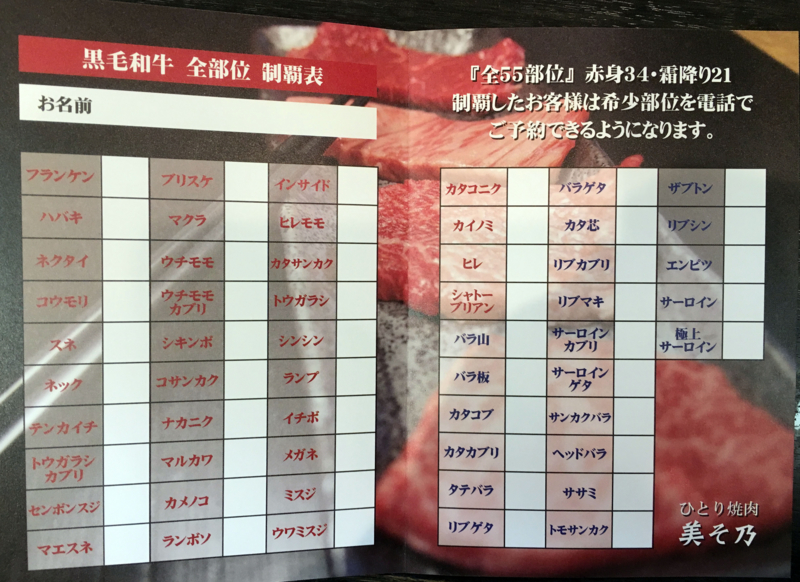 黒毛和牛 全部位 制覇表
お名前
フランケン ブリスケ インサイド
ハバキ マクラ ヒレモモ
ネクタイ ウチモモ カタサンカク
コウモリ ウチモモ トウガラシ
カブリ
スネ シキンボ シンシン
ネック コサンカク ランプ
テンカイチ ナカニク イチボ
トウガラシ マルカワ メガネ
カブリ
センボンスジ カメノコ ミスジ
マエスネ ランボソ ウワミスジ
『全55部位』赤身34・霜降り21
制覇したお客様は希少部位を電話で
ご予約できるようになります。
カタコニク バラゲタ ザブトン
カイノミ カタ芯 リブシン
ヒレ リブカブリ エンピツ
シャトー リブマキ サーロイン
ブリアン
バラ山 サーロイン 極上
カブリ サーロイン
バラ板 サーロイン
ゲタ
カタコブ サンカクバラ
カタカブリ ヘッドバラ
タテバラ ササミ
リブゲタ トモサンカク
ひとり焼肉
美そ乃